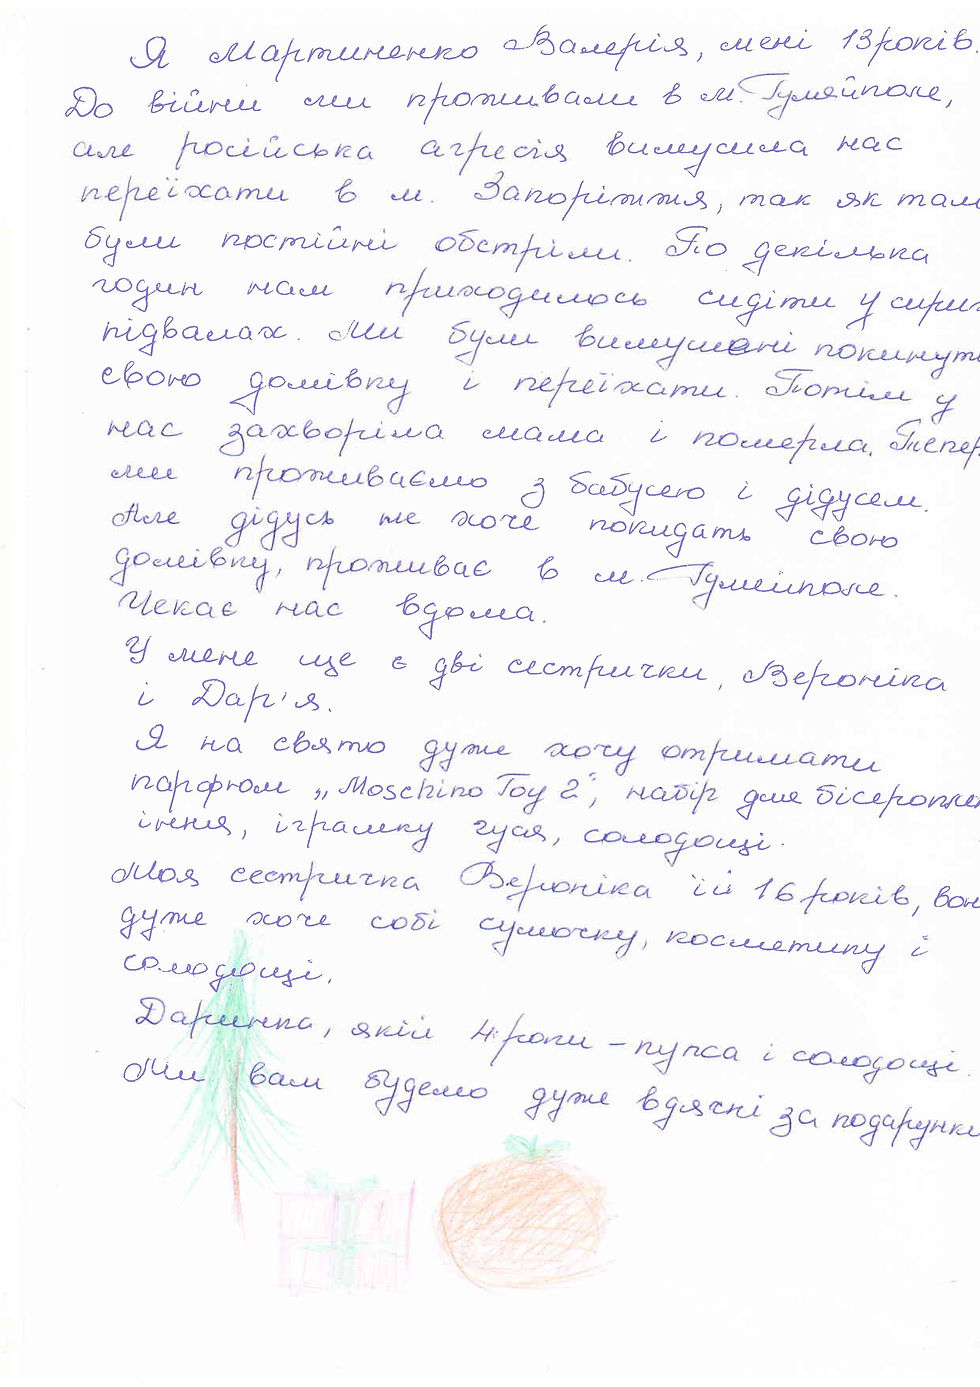 Я Мартиненко Валерія, мені 13 років.
До війни ми проживали в м. Гуляйполе,
але російська агресія вимусила нас
переїхати в м. Запоріжжя, так як там
були постійні обстріли. По декілька
годин нам приходилось сидіти у сирих
підвалах. Ми були вимушені покинути
свою домівку і переїхати. Потім у
нас захворіла мама і померла. Тепер
ми проживаємо з бабусею і дідусем.
Але дідусь не хоче покидать свою
домівку, проживає в м. Гуляйполе.
Чекає нас вдома.
У мене ще є дві сестрички, Вероніка
і Дар'я.
Я на свято дуже хочу отримати
парфюм „Moschino Toy 2", набір для бісероплет
іння, іграшку гуся, солодощі.
Моя сестричка Вероніка їй 16 років, вон
дуже хоче собі сумочку, косметику і
солодощі.
Даринка, якій 4 роки – пупса і солодощі.
Ми вам будемо дуже вдячні за подарунки